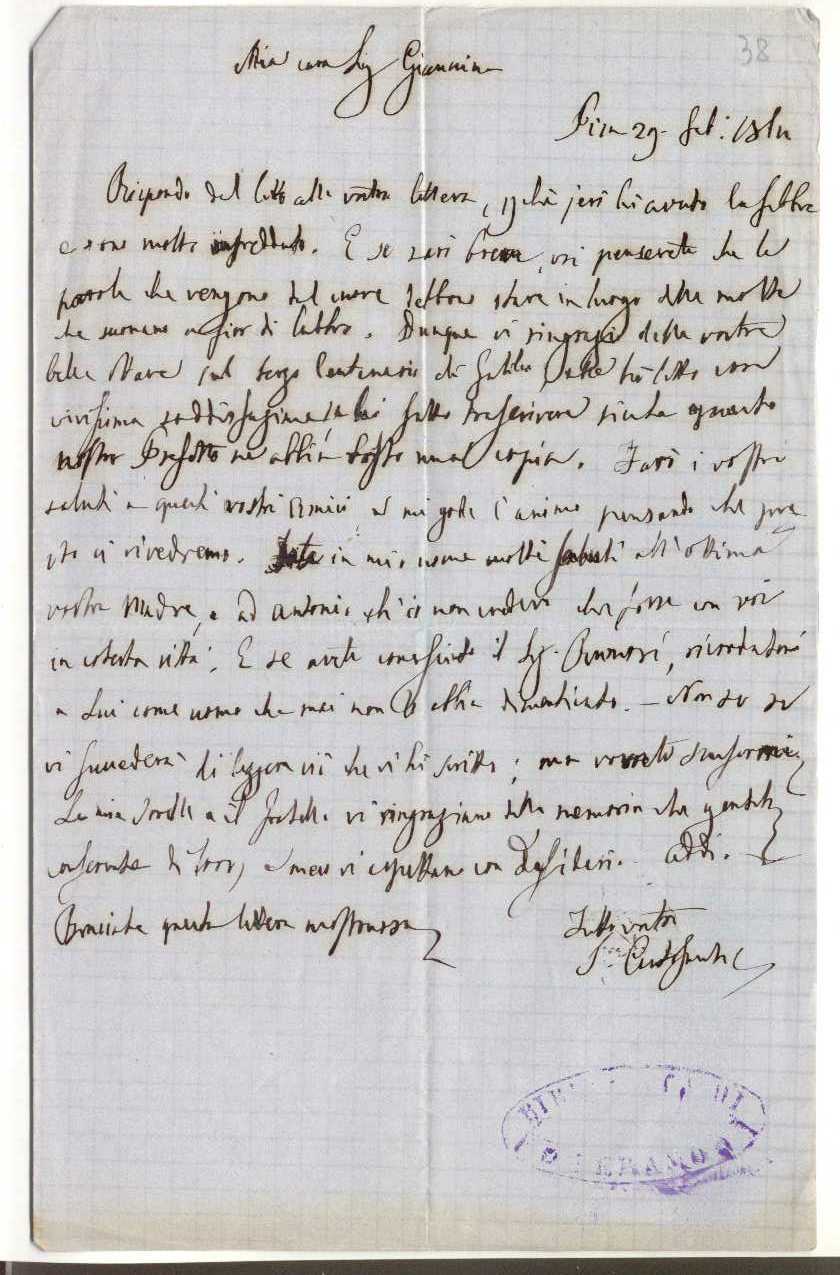 38
Mia cara Sig Giannina
Pisa 29. Feb:
Rispondo dal letto alla vostra lettera, chè jeri hi avuto la febbre
e sono molto infreddato. E se sarò breve, voi penserete che le
parole che vengono dal cuore debbono stare in luogo delle molte
che suonano a fior di labbro. Dunque vi ringrazio della vostra
bella Nave sul terzo Centenario di Galileo, che hò letto con
vivissima soddisfazione, e hò fatto trascrivere sicchè quanto
nostro Prefetto ne abbia tosto una copia. Farò i vostri
saluti a questi vostri Amici e mi gode l'animo pensando che pre-
sto ci rivedremo. Fate in mio nome molti saluti all'ottima
vostra Madre, e ad Antonio ch'io non credeva che fosse con voi
in cotesta città. E se avete conosciuto il Sig. ricordatemi
a Lui come uomo che mai non lo abbia dimenticato. — Non so se
vi succederà di leggere ciò che vi hò scritto; ma vorrete scusarmi
La mia Sorella e il fratello vi ringraziano della memoria che gentile
conservate di loro, e meco vi aspettano con desiderio. Addio.
Bruciate questa lettera mostruosa
Tutto vostro
TERAMO